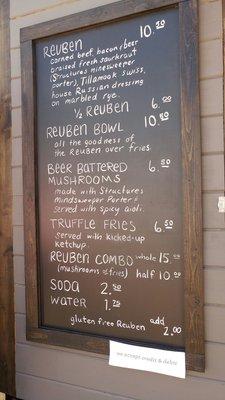 REUBEN 10.50
corned beef, bacon & beer
braised fresh saurkraut
(Structures minesweeper
porter), Tillamook swiss,
house Russian dressing
on marbled rye.
1/2 REUBEN 6.00
REUBEN BOWL 10.50
all the goodness of
the Reuben over fries.
BEER BATTERED 6.50
MUSHROOMS
made with Structures
mindsweeper Porter &
served with spicy aioli.
TRUFFLE FRIES 6.50
served with kicked-up
ketchup.
REUBEN COMBO whole 15.00
(mushrooms or fries) half 10.00
SODA 2.50
WATER 1.75
gluten free Reuben add 2.00
we accept credit & debit